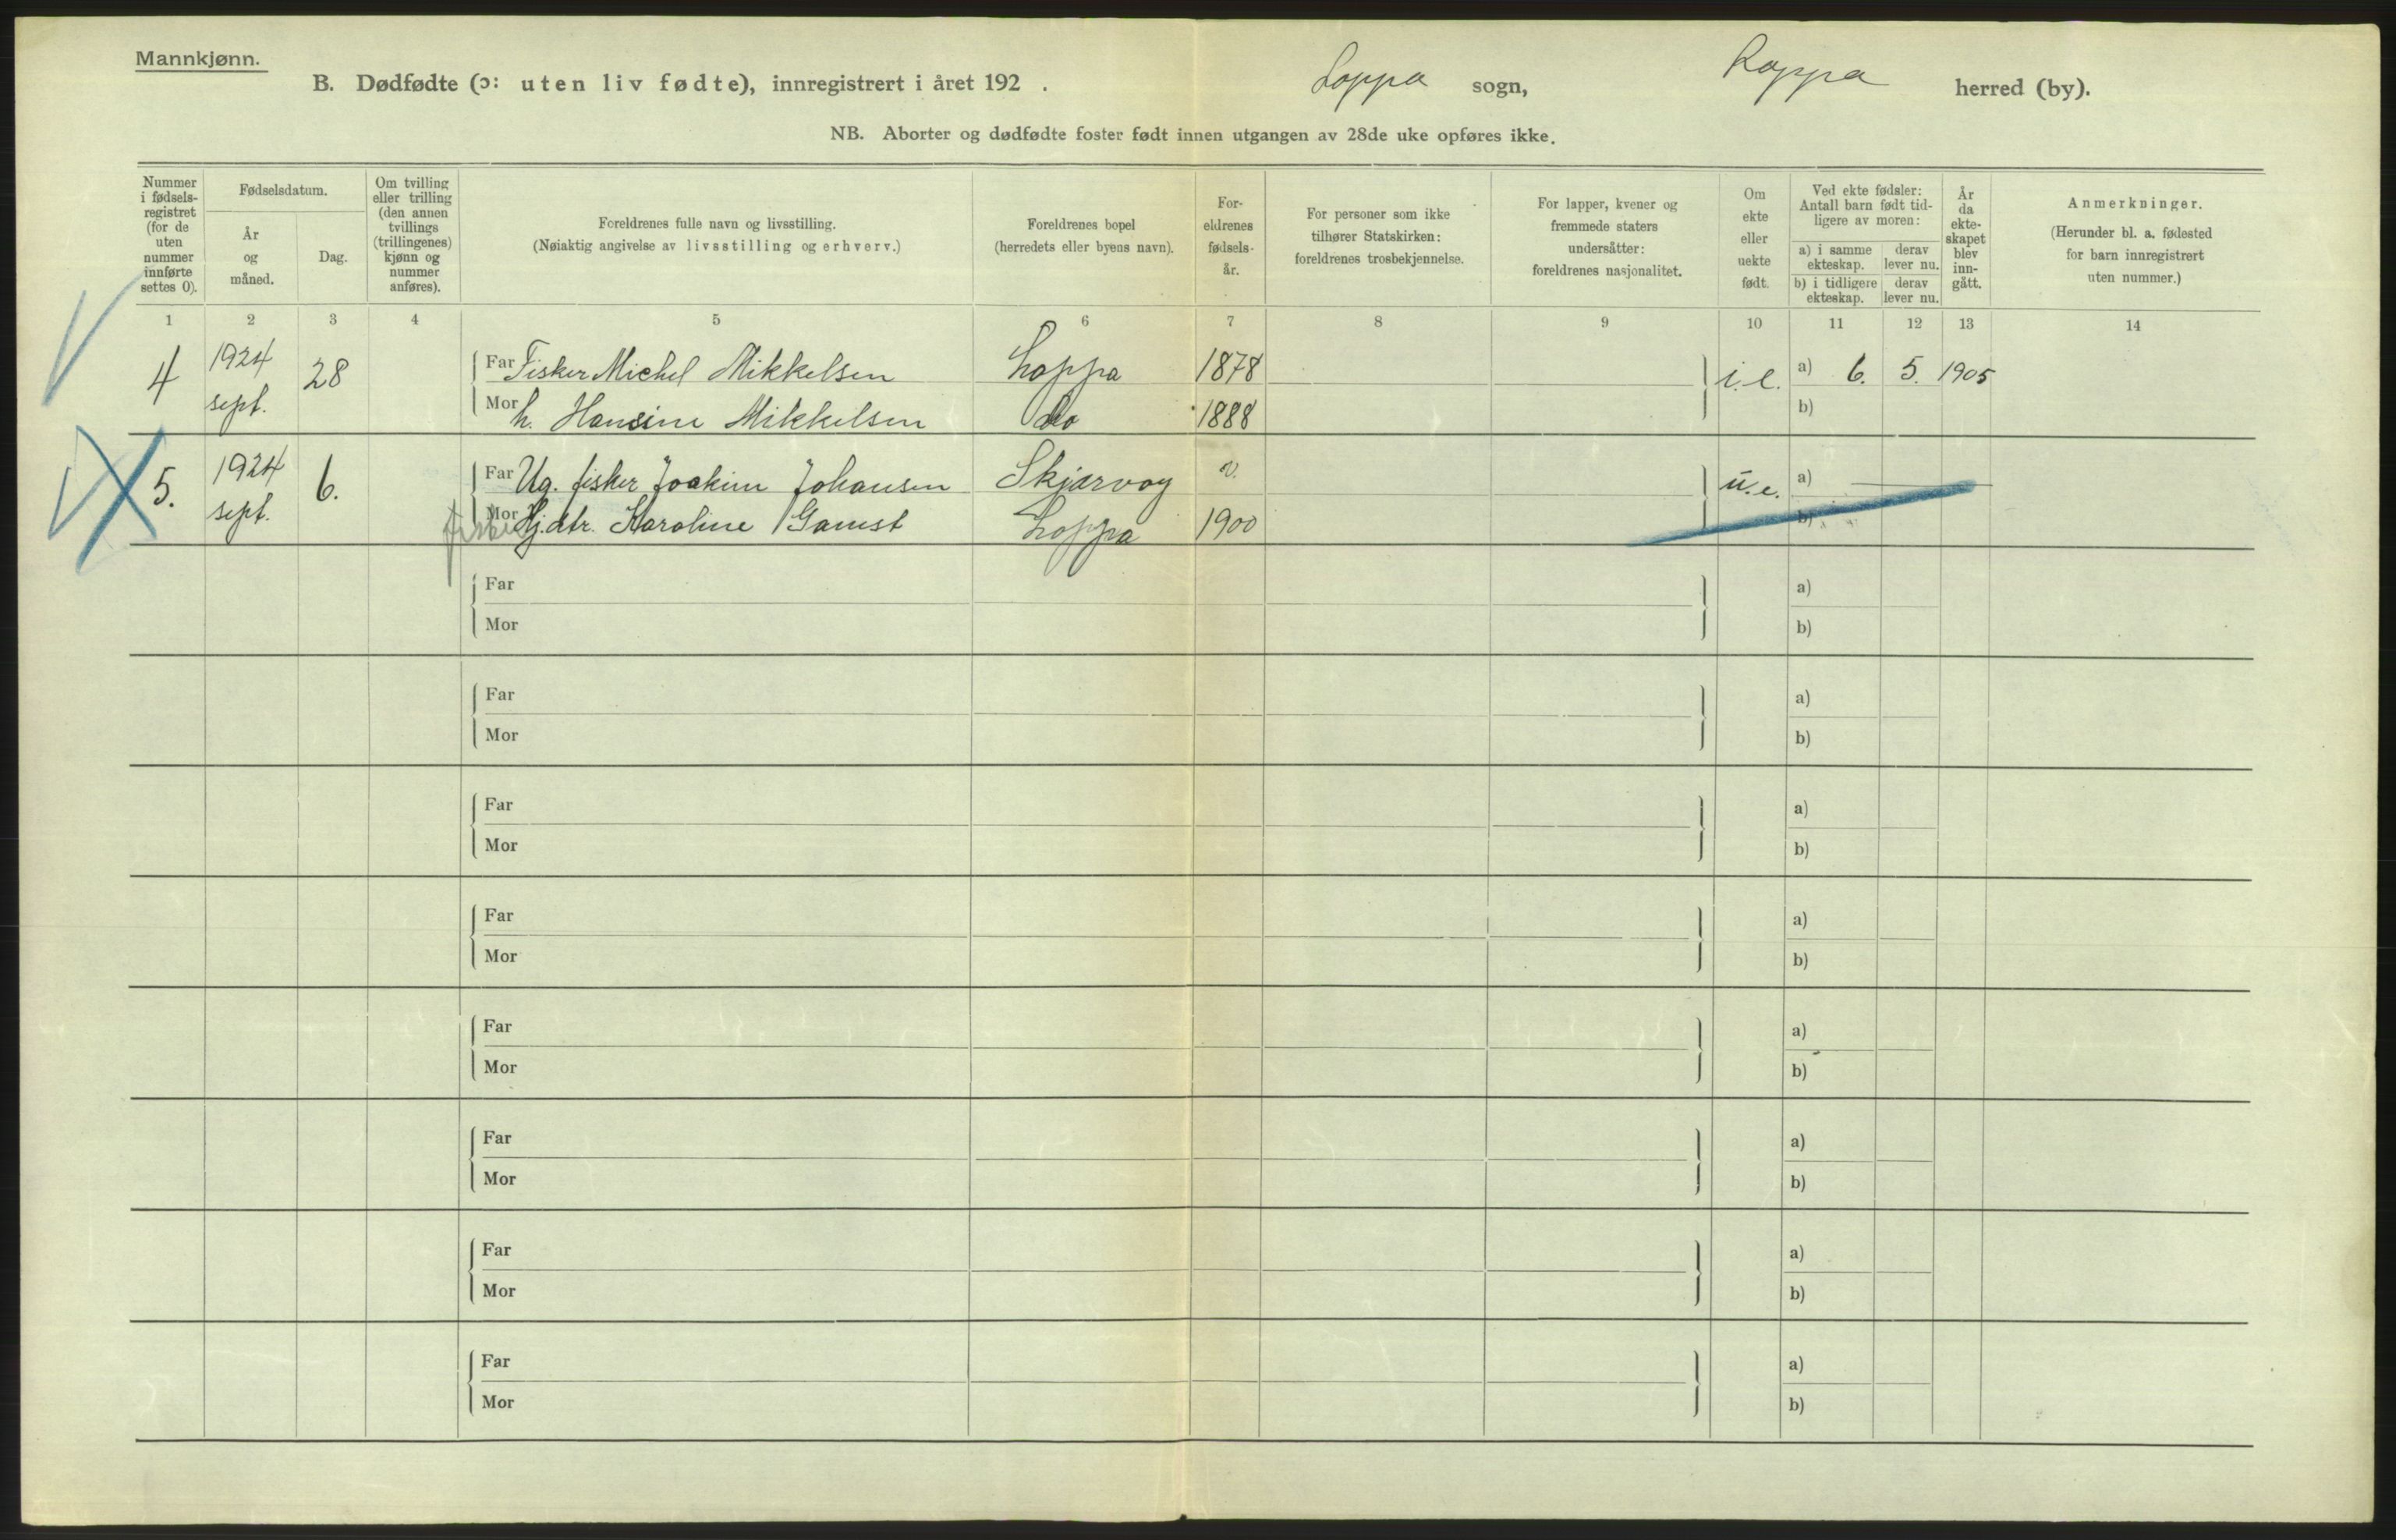 Mannkjønn.
B. Dødfødte (ɔ: uten liv fødte), innregistrert i året 192 . Loppa sogn, Loppa herred (by).
NB. Aborter og dødfødte foster født innen utgangen av 28de uke opføres ikke.
Nummer
i fødsels-
registret
(for de
uten
nummer
innførte
settes 0).
Fødselsdatum.
År
og
måned.
Dag.
Om tvilling
eller trilling
(den annen
tvillings
(trillingenes)
kjønn og
nummer
anføres).
Foreldrenes fulle navn og livsstilling.
(Nøiaktig angivelse av livsstilling og erhverv.)
Foreldrenes bopel
(herredets eller byens navn).
For-
eldrenes
fødsels-
år.
For personer som ikke
tilhører Statskirken:
foreldrenes trosbekjennelse.
For lapper, kvener og
fremmede staters
undersåtter:
foreldrenes nasjonalitet.
Om
ekte
eller
uekte
født.
Ved ekte fødsler:
Antall barn født tid-
ligere av moren:
a) i samme
ekteskap.
derav
lever nu.
b) i tidligere
ekteskap.
derav
lever nu.
År
da
ekte-
skapet
blev
inn-
gått.
Anmerkninger.
(Herunder bl. a. fødested
for barn innregistrert
uten nummer.)
1 2 3 4 5 6 7 8 9 10 11 12 13 14
4 1924 sept. 28 Far Fisker Michel Mikkelsen Loppa 1878 i.e. a) 6. 5. 1905
Mor h. Hansine Mikkelsen do 1888 b)
5. 1924 sept. 6. Far Ug. fisker Joakim Johansen Skjærvøy u.e. a)
Mor Hj. dtr. Karoline Gamst Loppa 1900 b)
Far a)
Mor b)
Far a)
Mor b)
Far a)
Mor b)
Far a)
Mor b)
Far a)
Mor b)
Far a)
Mor b)
Far a)
Mor b)
Far a)
Mor b)